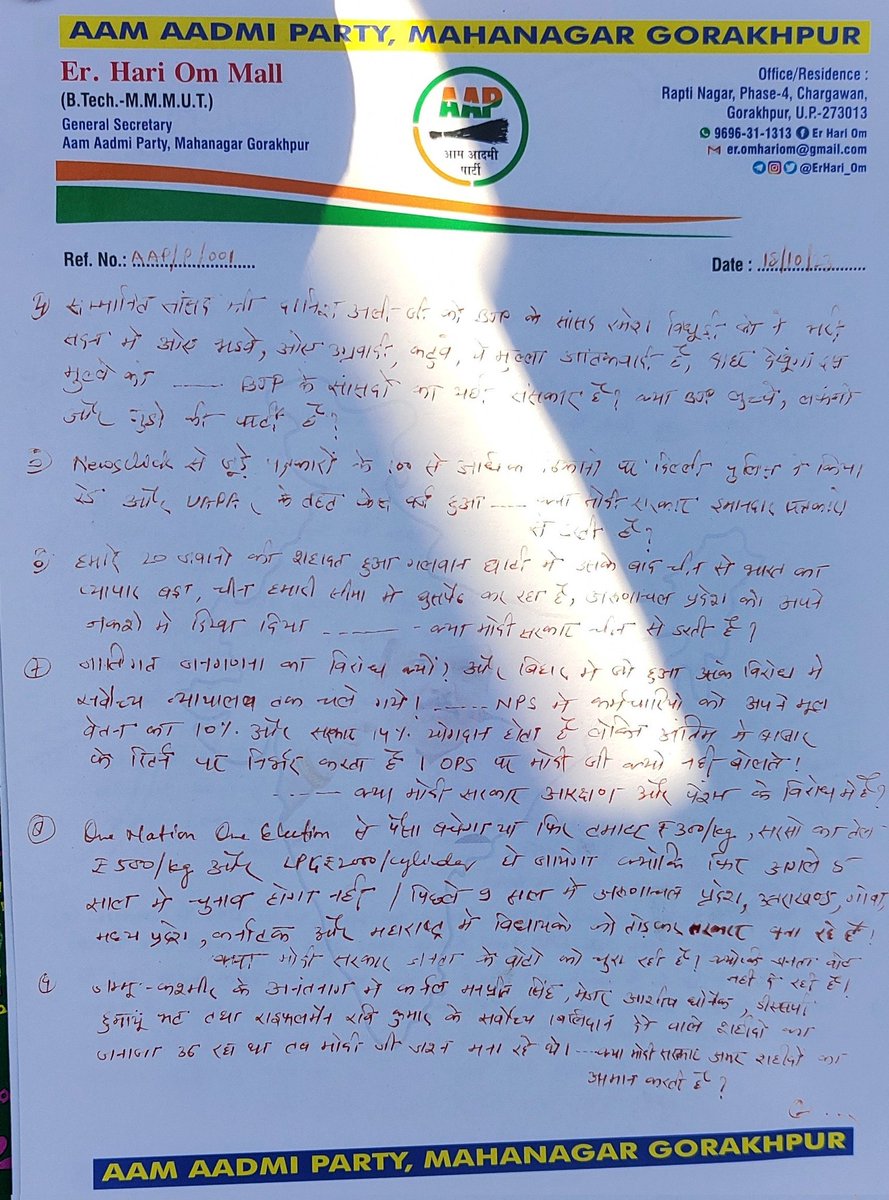 AAM AADMI PARTY, MAHANAGAR GORAKHPUR
Er. Hari Om Mall
(B.Tech.-M.M.M.U.T.)
General Secretary
Aam Aadmi Party, Mahanagar Gorakhpur
AAP
आम आदमी
पार्टी
Office/Residence :
Rapti Nagar, Phase-4, Chargawan,
Gorakhpur, U.P.-273013
9696-31-1313 Er Hari Om
er.omhariom@gmail.com
@ErHari_Om
Ref. No.: AAP/P/001
Date : 18/10/23
सम्मानित सांसद श्री दानिश अली जी को BJP के सांसद रमेश विधुड़ी ने भरी
सदन में ओए भडवे, ओए उग्रवादी, कटुवे, ये मुल्ला आंतकवादी है, बाहर देखूंगा इस
मुल्ले को ---- BJP के सांसदो का यही संस्कार है? क्या BJP लुच्चे, लफंगो
और गुंडो की पार्टी है?
Newsclick से जुड़े पत्रकारो के 100 से अधिक ठिकानो पर दिल्ली पुलिस ने किया
रेड और UAPA के तहत केस दर्ज हुआ ---- क्या मोदी सरकार इमानदार पत्रकारो
से डरती है?
हमारे 20 जवानो की शहादत हुआ गलवान घाटी में उसके बाद चीन से भारत का
व्यापार बढ़ा, चीन हमारी सीमा में घुसपैठ कर रहा है, अरुणाचल प्रदेश को अपने
नकशे में दिखा दिया -------- क्या मोदी सरकार चीन से डरती है?
जातिगत जनगणना का विरोध क्यों? और बिहार में जो हुआ उसके विरोध में
सर्वोच्च न्यायालय तक चले गये! ----- NPS में कर्मचारियो को अपने मूल
वेतन का 10% और सरकार 14% योगदान होता है लेकिन अंतिम में बाजार
के रिटर्न पर निर्भर करता है। OPS पर मोदी जी क्यो नही बोलते!
----- क्या मोदी सरकार आरक्षण और पेंशन के विरोध में है?
One Nation One Election से पैसा बचेगा या फिर टमाटर ₹300/kg, सरसो का तेल
₹500/kg और LPG ₹2000/cylinder हो जायेगा क्योकि फिर अगले 5
साल में चुनाव होगा नही / पिछले 9 साल में अरुणाचल प्रदेश, उत्तराखण्ड, गोवा,
मध्य प्रदेश, कर्नाटक और महाराष्ट्र में विधायको को तोड़कर सरकार बना रहे है!
क्या मोदी सरकार जनता के वोटो को चुरा रही है? क्योकि जनता वोट
नही दे रही है!
जम्मू-कश्मीर के अनंतनाग में कर्नल मनप्रीत सिंह, मेजर आशीष धोनैक, डीएसपी
हुमायूं भट तथा राइफलमैन रवि कुमार के सर्वोच्च बलिदान देने वाले शहीदो का
जनाजा उठ रहा था तब मोदी जी जश्न मना रहे थे। ---- क्या मोदी सरकार अमर शहीदो का
अपमान करती है?
AAM AADMI PARTY, MAHANAGAR GORAKHPUR